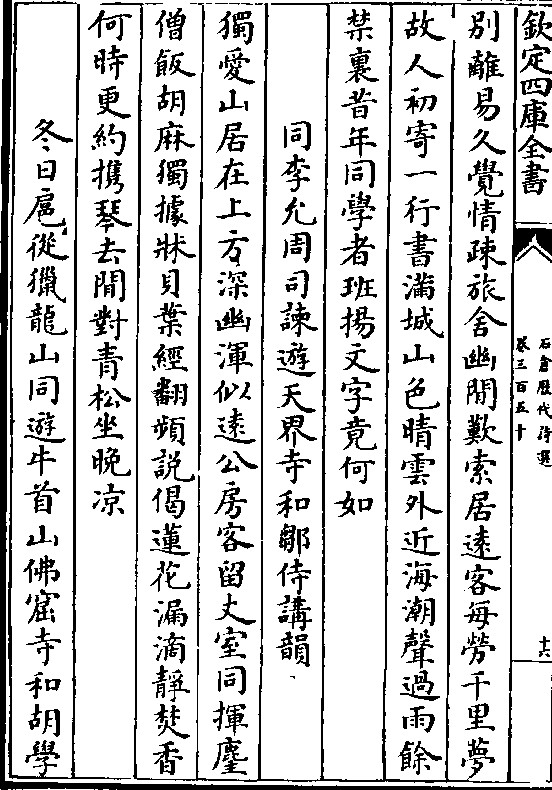 欽定四庫全書
石倉歷代詩選
卷三百五十
十六
別離易久覺情疎旅舍幽閒歎索居遠客每勞千里夢
故人初寄一行書滿城山色晴雲外近海潮聲過雨餘
禁裏昔年同學者班揚文字竟何如
同李允周司諫遊天界寺和鄒侍講韻
獨愛山居在上方深幽渾似遠公房客留丈室同揮麈
僧飯胡麻獨據牀貝葉經翻頻說偈蓮花漏滴靜焚香
何時更約攜琴去閒對青松坐晚凉
冬日扈從獵龍山同遊牛首山佛窟寺和胡學